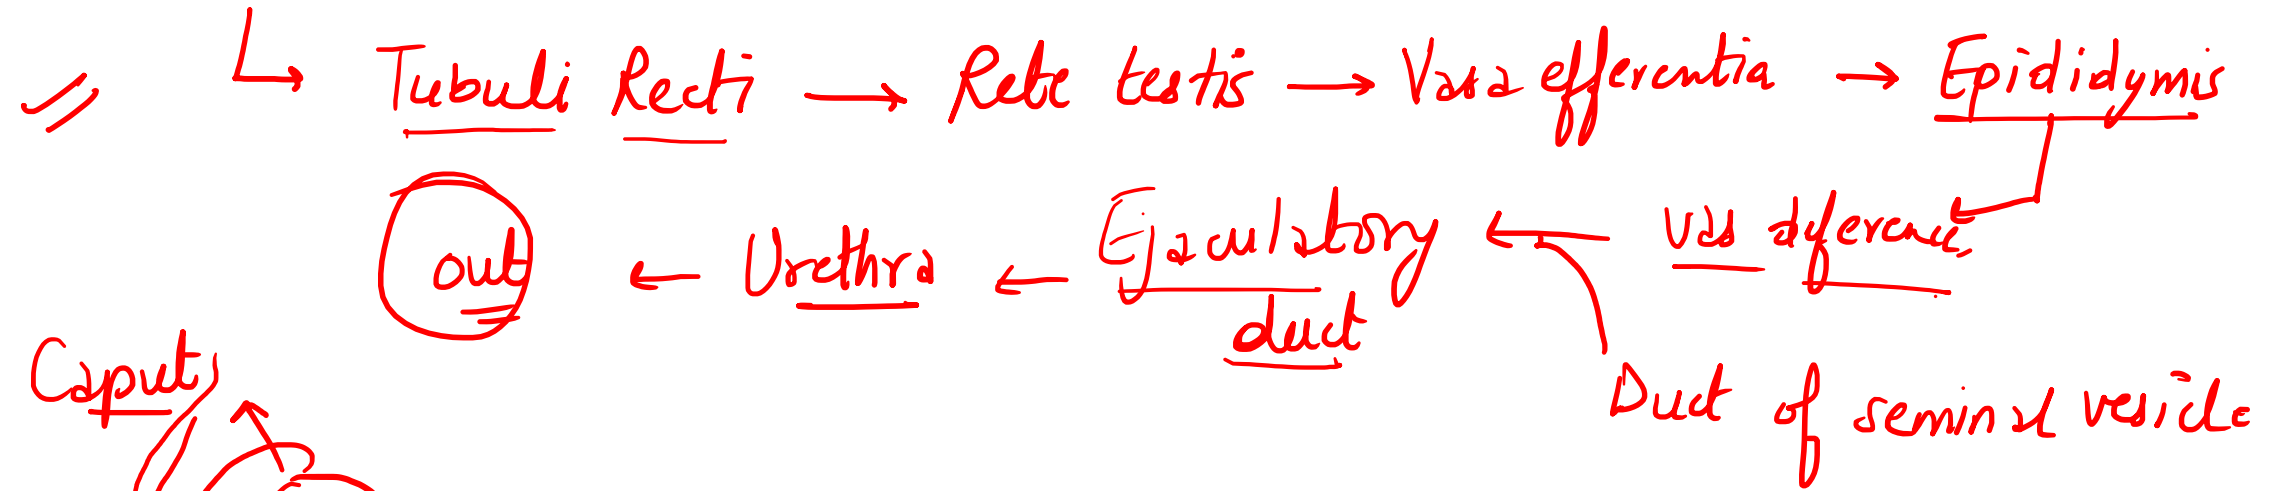 ↳ Tubuli Recti → Rete testis → Vasa efferentia → Epididymis
out ← Urethra ← Ejaculatory duct ← Vas deference
Duct of seminal vesicle
Caput